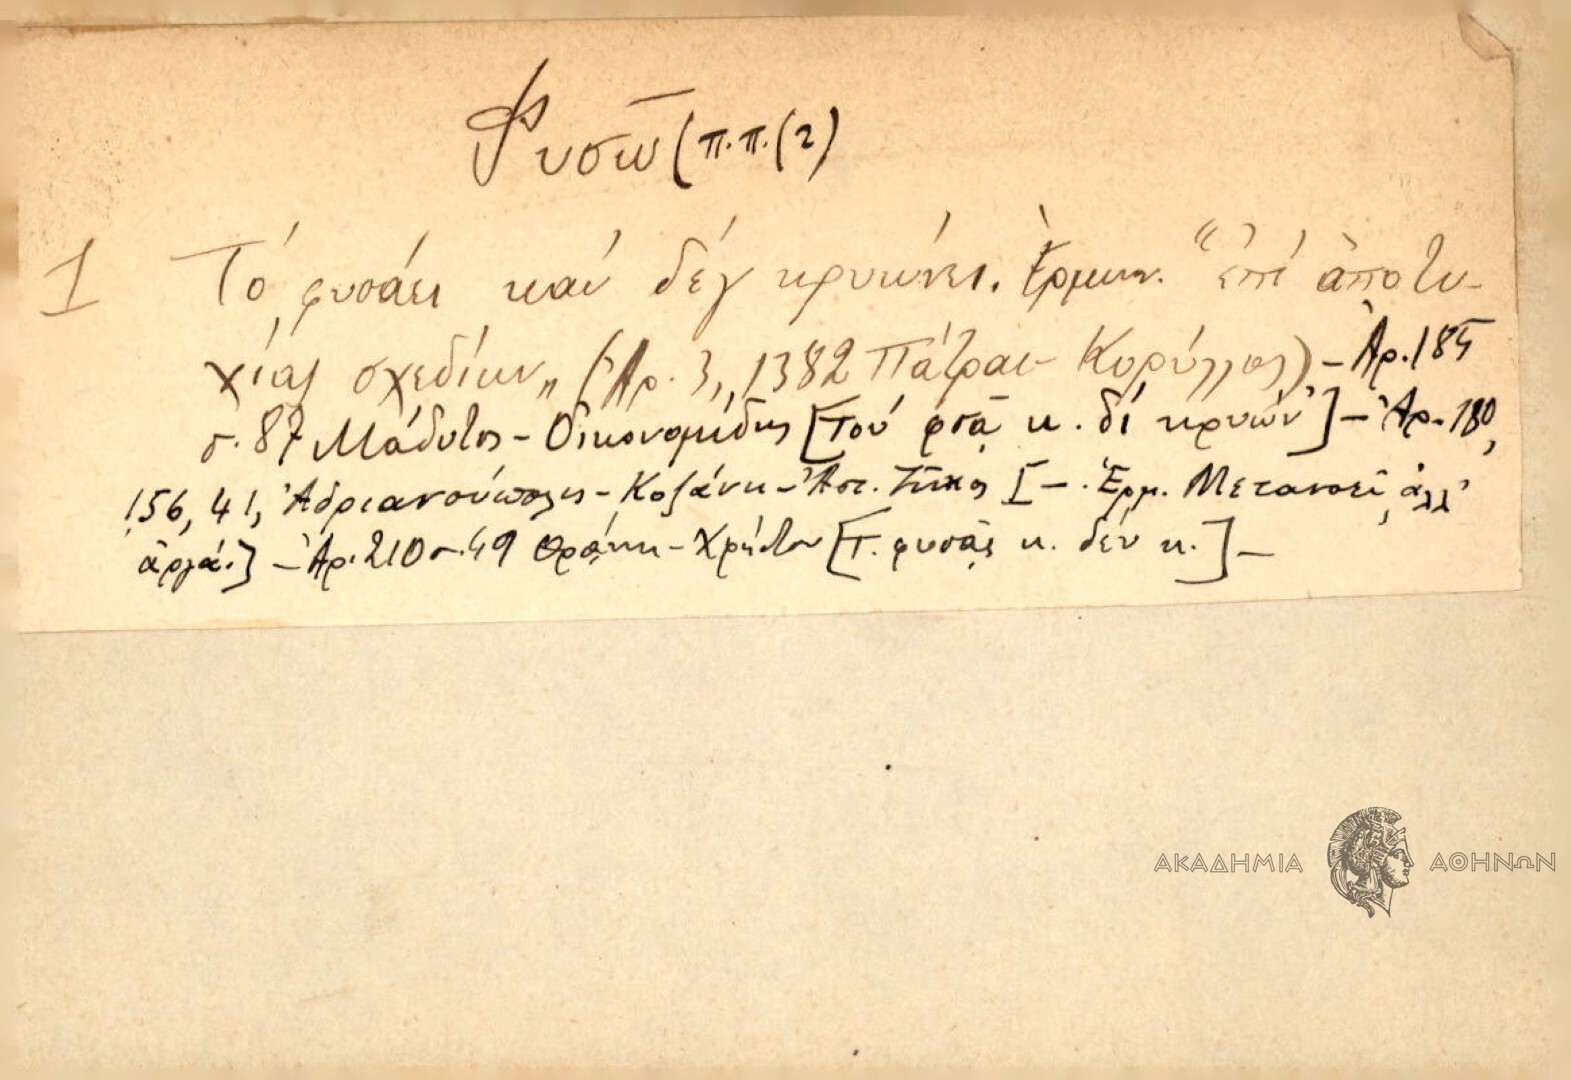 Φυσῶ (π.π. (2)
1 Τό φυσάει καί δέγ κρυώνει. Ἑρμην. "ἐπί ἀποτυ-
χίας σχεδίων" (Ἀρ. 3, 1382 Πάτραι - Κορύλλος) - Ἀρ. 185
σ. 87 Μάδυτος - Οἰκονομίδης [Τού φσᾷ κ. δί κρυών'] - Ἀρ. 180,
156, 41, Ἀδριανούπολις - Κοζάνη - [- Ἑρμ. Μετανοεῖ, ἀλλ'
ἀργά.] - Ἀρ. 210 σ. 49 Θρᾴκη - Χρήστου [Τ. φυσᾷς κ. δέν κ.] -
ΑΚΑΔΗΜΙΑ ΑΘΗΝΩΝ